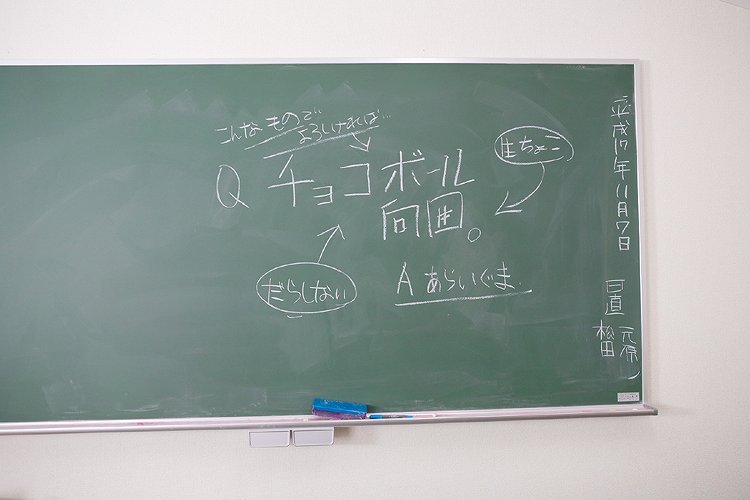 こんなもので
よろしければ…
Q チョコボール
向囲。
生ちょこ
だらしない
A あらいぐま.
平成17年11月7日
日直
松田
元原